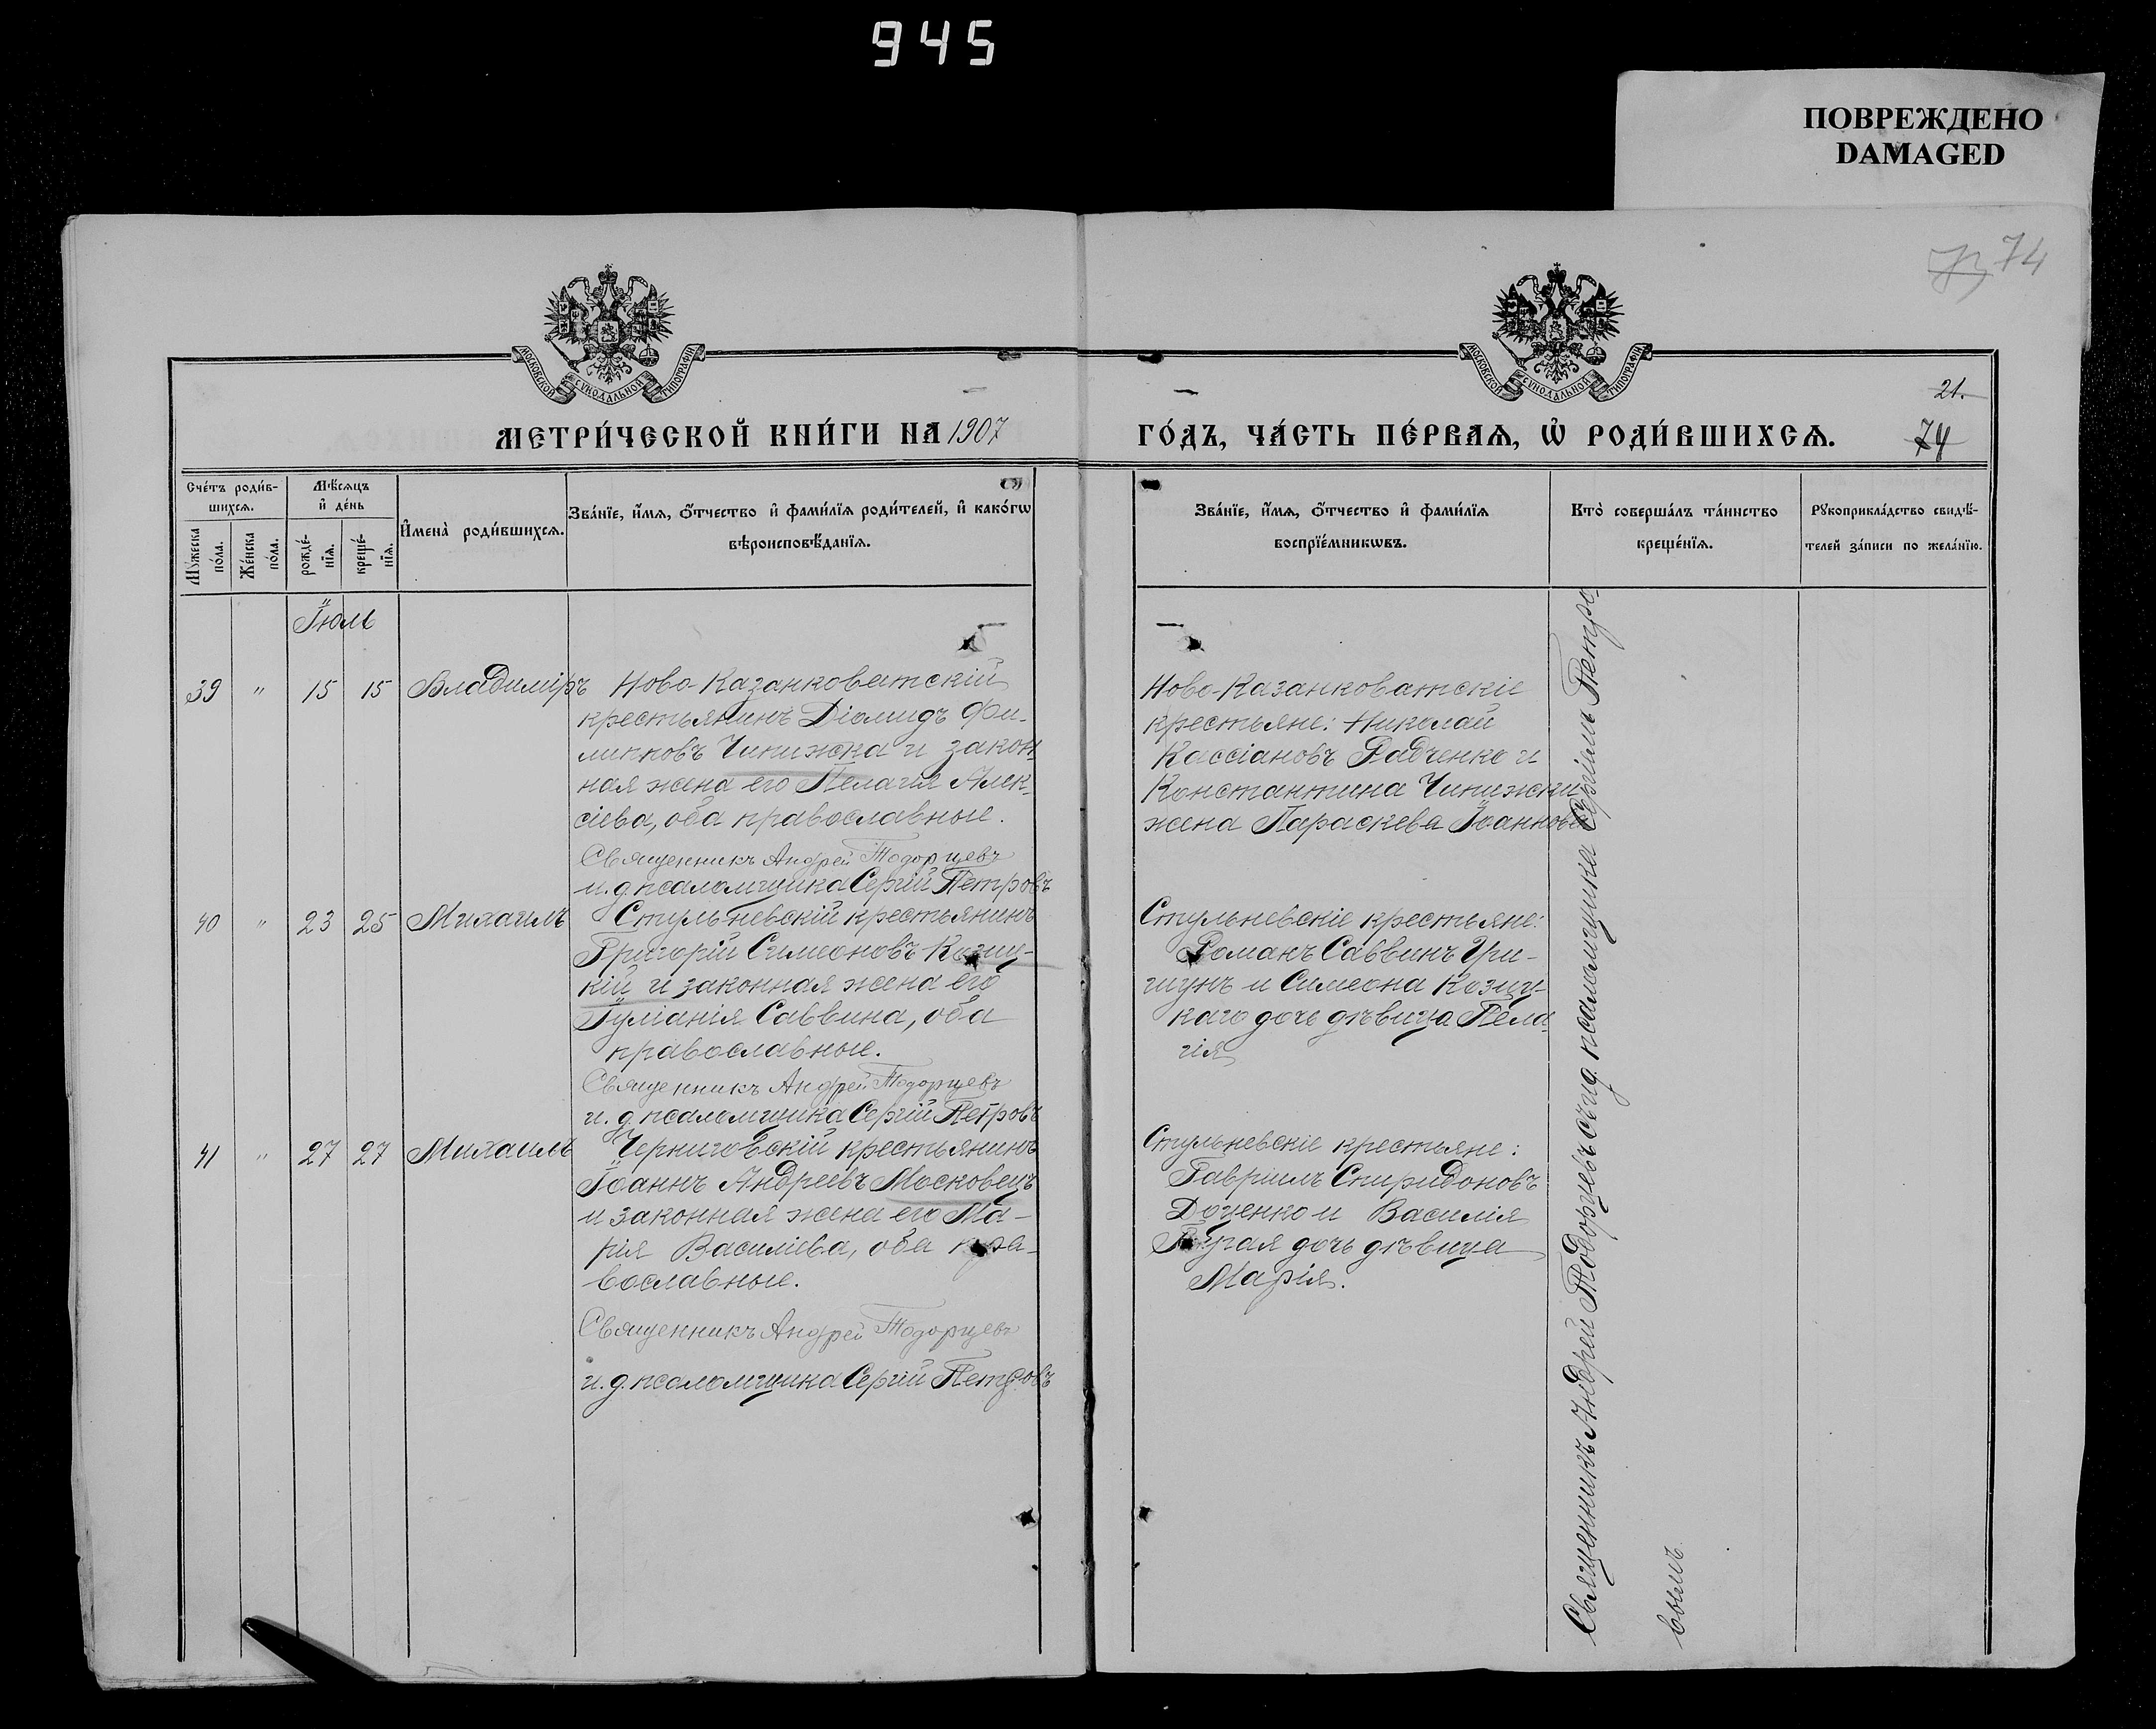 945
ПОВРЕЖДЕНО
DAMAGED
73 74
МОСКОВСКОЙ СѴНОДАЛЬНОЙ ТИПОГРАФІИ
МОСКОВСКОЙ СѴНОДАЛЬНОЙ ТИПОГРАФІИ
21.
МЕТРИ́ЧЕСКОЙ КНИ́ГИ НА 1907
ГО́ДЪ, ЧА́СТЬ ПЕ́РВАЯ, Ѡ РОДИ́ВШИХСѦ.
74
Сче́тъ роди́в-
шихсѧ.
Мѣ́сяцъ
и҆ де́нь
Мꙋ́жеска
по́ла.
Же́нска
по́ла.
рожде́-
нїѧ.
креще́-
нїѧ.
И҆мена̀ роди́вшихсѧ.
Зва́нїе, и҆́мѧ, ѻ҆́тчество и҆ фами́лїѧ роди́телей, и҆ како́гѡ
вѣроисповѣ́данїѧ.
Зва́нїе, и҆́мѧ, ѻ҆́тчество и҆ фами́лїѧ
воспрїе́мникѡвъ.
Кто̀ соверша́лъ та́инство
креще́нїѧ.
Рꙋкоприкла́дство свидѣ́-
телей за́писи по жела́нїю.
Іюль
39 " 15 15 Владиміръ Ново-Казанковатскій
крестьянинъ Діомидъ Фи-
липповъ Чинижка и закон-
ная жена его Пелагія Алек-
сіева, оба православные.
Священникъ Андрей Тодорцевъ
и. д. псаломщика Сергій Петровъ
Ново-Казанковатскіе
крестьяне: Николай
Кассіановъ Радченко и
Константина Чинижки
жена Параскева Іоаннова
40 " 23 25 Михаилъ Стульневскій крестьянинъ
Григорій Симеоновъ Козиц-
кій и законная жена его
Іуліанія Саввина, оба
православные.
Священникъ Андрей Тодорцевъ
и. д. псаломщика Сергій Петровъ
Стульневскіе крестьяне:
Романъ Саввинъ Гри-
шунъ и Симеона Козиц-
каго дочь дѣвица Пела-
гія
41 " 27 27 Михаилъ Черниговскій крестьянинъ
Іоаннъ Андреевъ Московецъ
и законная жена его Ма-
рія Василіева, оба пра-
вославные.
Священникъ Андрей Тодорцевъ
и. д. псаломщика Сергій Петровъ
Стульневскіе крестьяне:
Гавріилъ Спиридоновъ
Доценко и Василія
дочь дѣвица
Марія.
Священникъ Андрей Тодорцевъ съ и. д. псаломщика Сергіемъ Петро-
вымъ.